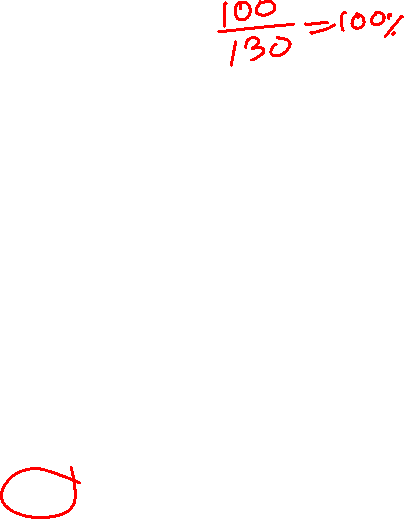 100
130 = 100%